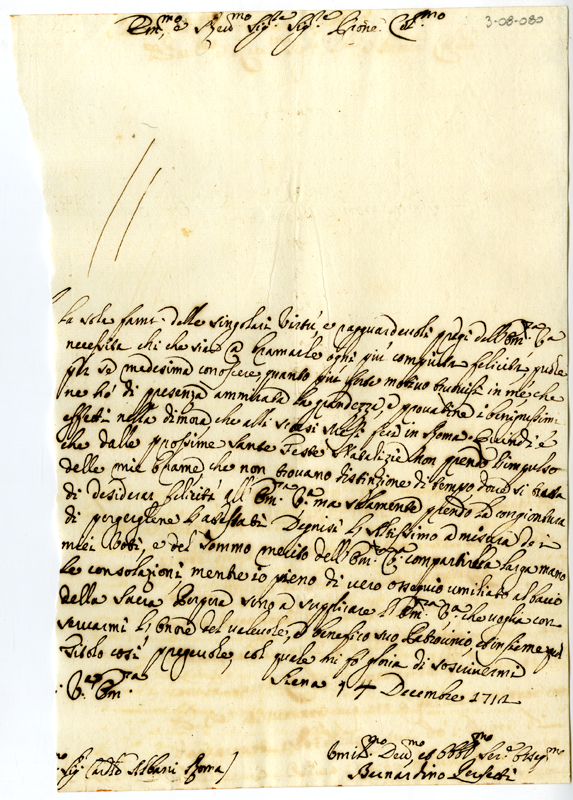 3-08-080
Em.mo e Rev.mo Sig.re Sig.re Pron.e Col.mo
La sola fama delle singolari Virtù, e ragguardevoli pregi dell'Em.za V.a
necessita chi che sia a bramarle ogni più compiuta felicità, puole
per se medesima conoscere quanto più forte motivo trovisi in me, che
ne hò di presenza ammirata la grandezza, e provatine i benignissimi
effetti nella dimora che alli scorsi mesi feci in Roma. Quindi è
che dalle prossime Sante Feste Natalizie non prendo l'impulso
delle mie brame che non trovano distinzione di tempo dove si tratta
di desiderar felicità all'Em.za V.a ma solamente prendo la congiontura
di porgergliene gl'attestati. Degnisi l'Altissimo a misura de i
miei Voti, e del sommo merito dell'Em.za V.a compartirle a larga mano
le consolazioni mentre io pieno di vero ossequio umiliato al bacio
della Sacra Porpora vengo a supplicare l'Em.za V.a, che voglia con
servarmi l'onore del valevole, e benefico suo Patrocinio, ed insieme quel
Titolo così pregevole, col quale mi fo gloria di soscrivermi
V.a Em.za
Siena 14 Decembre 1712
Sig.r Card.l Albani Roma
Umil.mo Dev.mo ed Obbl.mo Ser.e Osseq.mo
Bernardino Perfetti